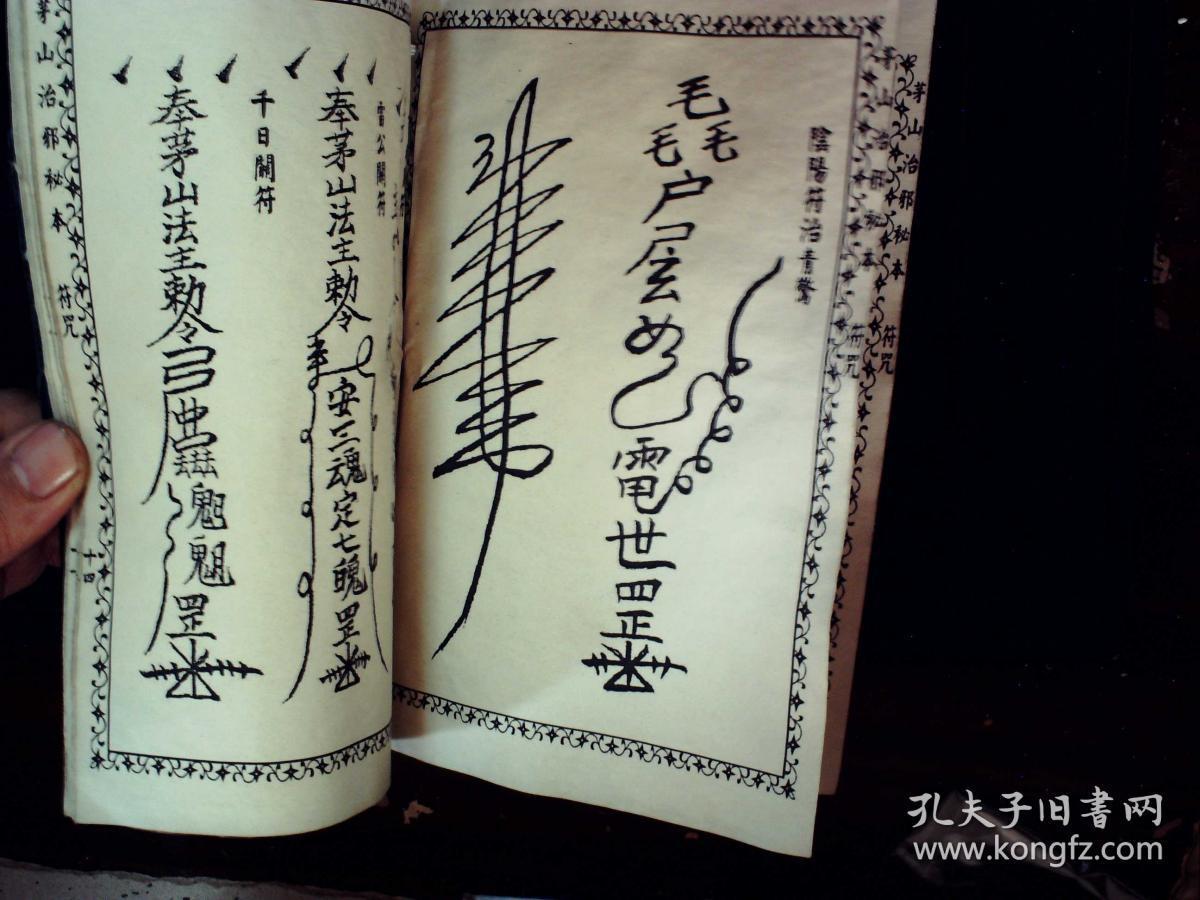 茅山治邪秘本
符咒
茅山治邪秘本
符咒
陰陽符治青驚
毛
毛毛
户
電世罡
雷公關符
奉茅山法主勅令
安三魂定七魄罡
千日關符
奉茅山法主勅令
罡
茅山治邪秘本
符咒
十四
孔夫子旧書网
www.kongfz.com